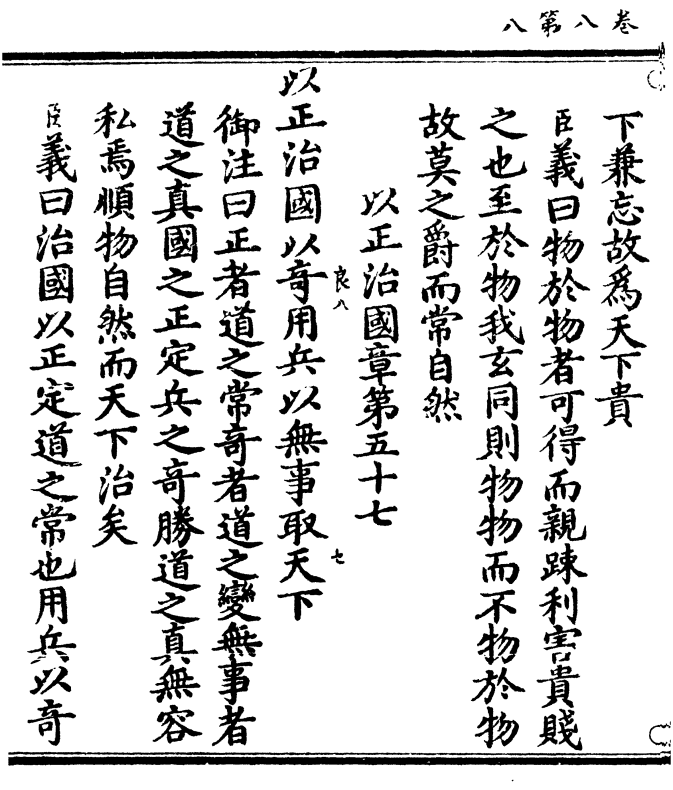 卷八第八
下兼忘故爲天下貴
臣義曰物於物者可得而親踈利害貴賤
之也至於物我玄同則物物而不物於物
故莫之爵而常自然
以正治國章第五十七
以正治國以竒用兵以無事取天下
良八
七
御注曰正者道之常竒者道之變無事者
道之真國之正定兵之竒勝道之真無容
私焉順物自然而天下治矣
臣義曰治國以正定道之常也用兵以竒